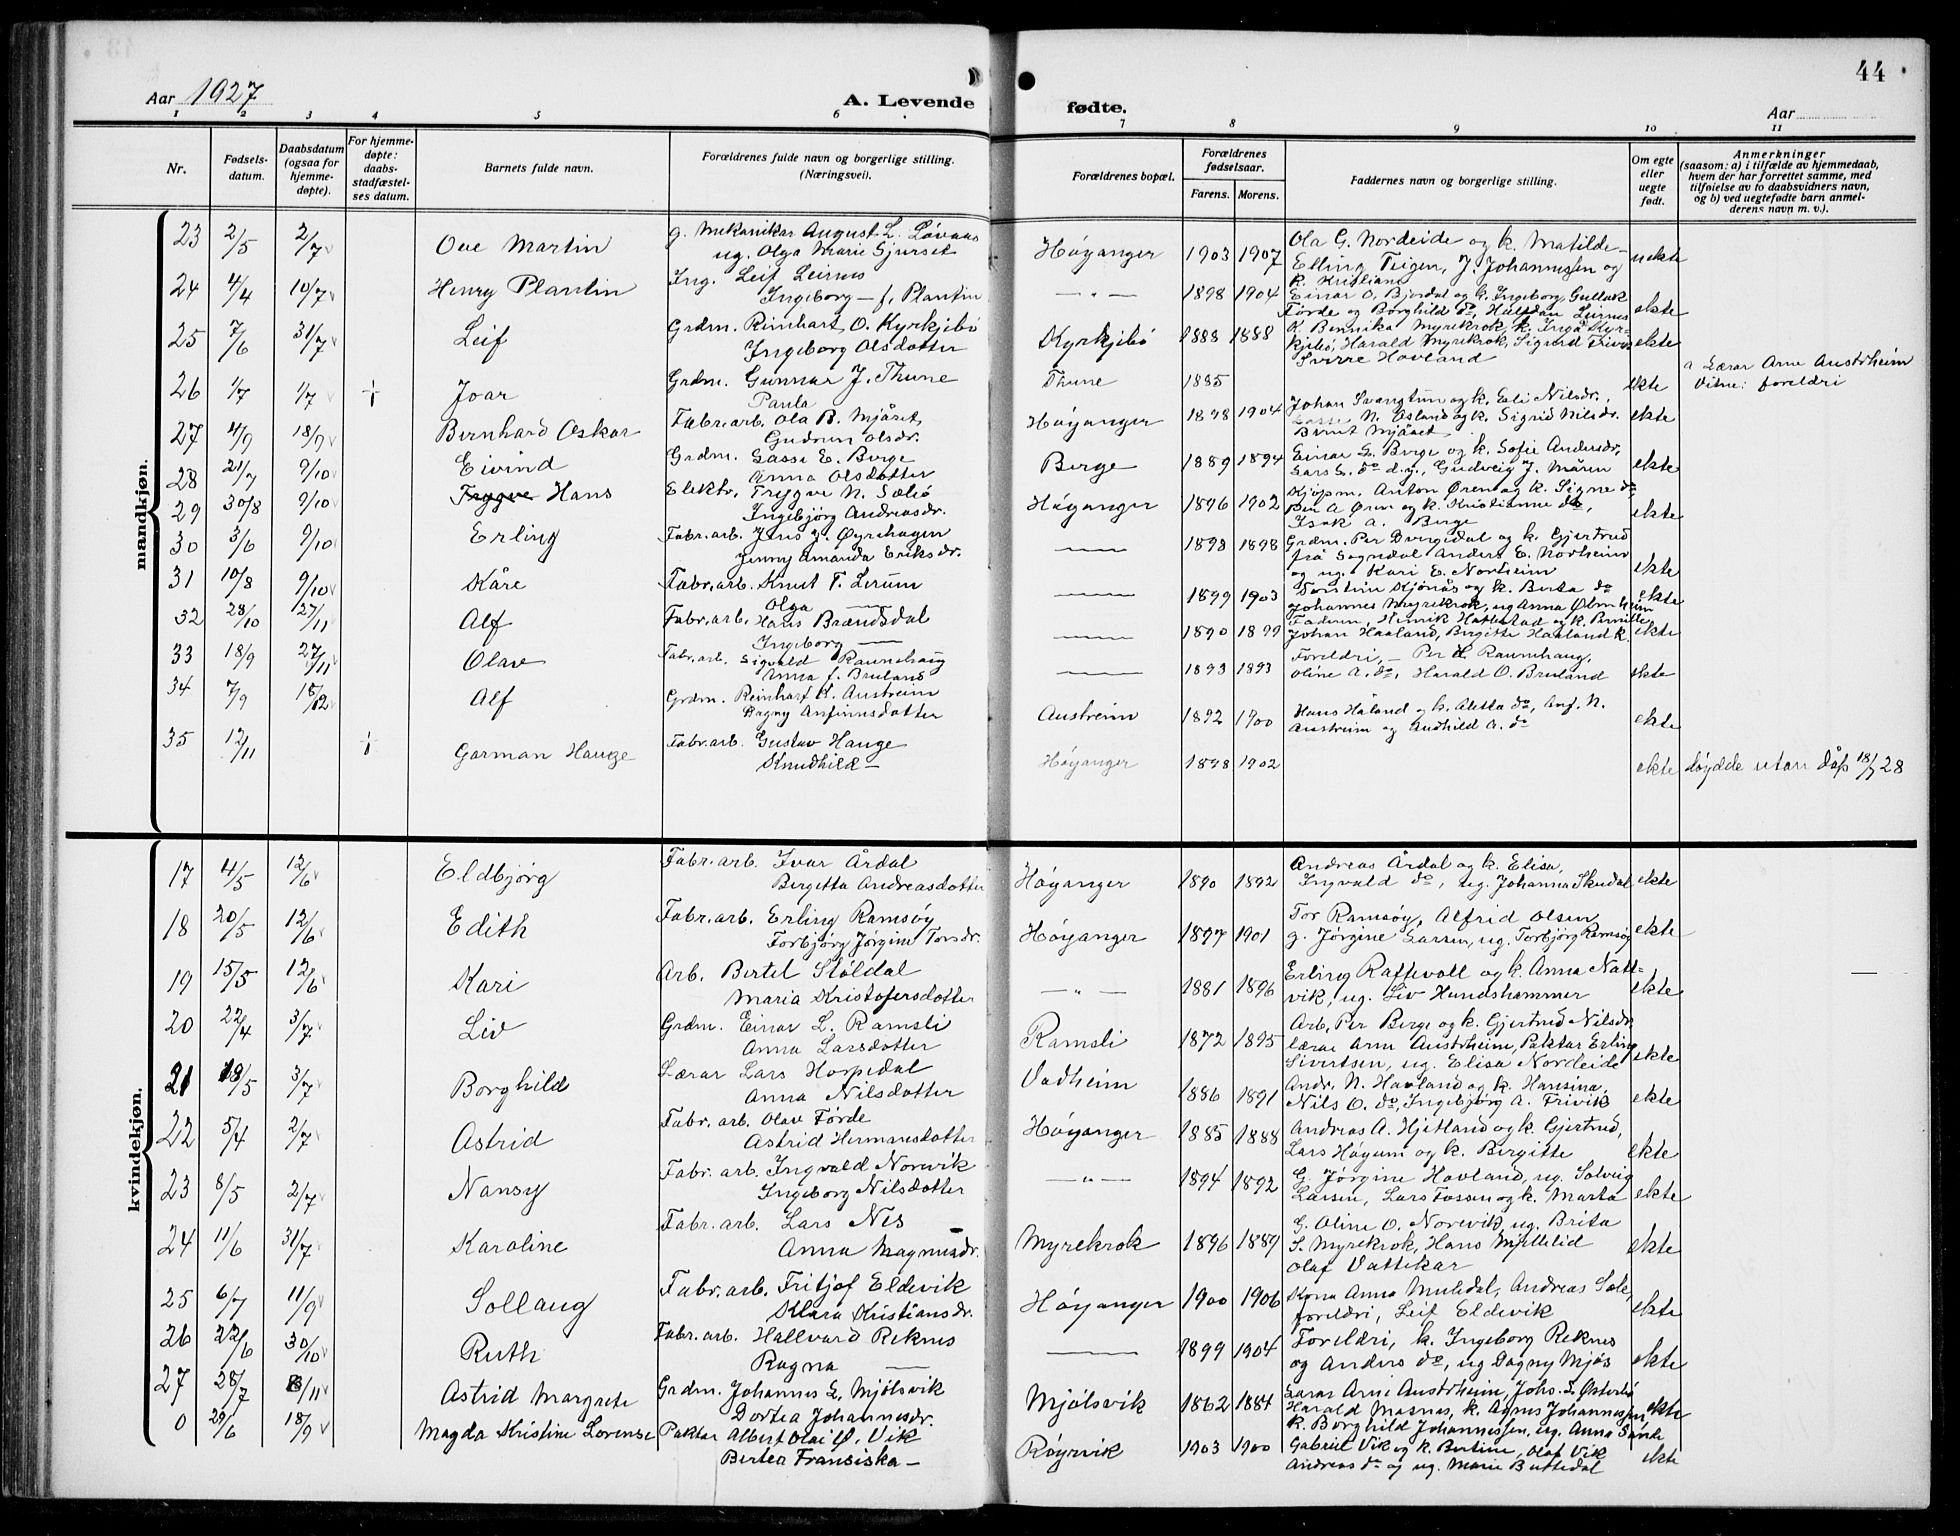 Aar 1927
A. Levende fødte.
44
Aar
1 2 3 4 5 6 7 8 9 10 11
Nr.
Fødsels-datum.
Daabsdatum (ogsaa for hjemme-døpte).
For hjemme-døpte: daabs-stadfæstel-ses datum.
Barnets fulde navn.
Forældrenes fulde navn og borgerlige stilling. (Næringsvei).
Forældrenes bopæl.
Forældrenes fødselsaar.
Farens. Morens.
Faddernes navn og borgerlige stilling.
Om egte eller uegte født.
Anmerkninger (saasom: a) i tilfælde av hjemmedaab, hvem der har forrettet samme, med tilføielse av to daabsvidners navn, og b) ved uegtefødte barn anmel-derens navn m. v.).
mandkjøn.
23 2/5 2/7 Ove Martin g. Mekanikar August L. Løvaas
ug. Olga Marie Sjurset Høyanger 1903 1907 Ola G. Nordeide og k. Matilde
Elling Teigen, J. Johannessen og k. Kristiane uekte
24 4/4 10/7 Henry Plantin Ing. Leif Leirnes
Ingeborg — f. Plantin —„— 1898 1904 Einar O. Bjordal og G. Ingeborg Gullak
Førde og Borghild do, Halfdan Leirnes ekte
25 7/6 31/7 Leif Grdm. Reinhart O. Kyrkjebø
Ingeborg Olsdotter Kyrkjebø 1888 1888 K. Bennika Myrekrok, k. Inga Kyr-
kjebø, Harald Myrekrok, Sigurd Trivik
Sverre Hovland ekte
26 1/7 1/7 + Joar Grdm. Gunnar J. Thune
Paula Thune 1885 ekte a Lærar Arne Austrheim
Vitne: foreldri
27 4/9 18/9 Bernhard Oskar Fabr.arb. Ola B. Mjåset,
Gudrun Olsdr. Høyanger 1898 1904 Johan Svangtun og k. Eli Nilsdr.,
Lasse N. Osland og k. Sigrid Nilsdr.
Bernt Mjåset ekte
28 21/7 9/10 Eivind Grdm. Lasse E. Berge
Anna Olsdotter Berge 1889 1894 Einar L. Berge og k. Sofie Andersdr,
Lars L. do d.y., Gudveig J. Måren ekte
29 30/8 9/10 Trygve Hans Elektr. Trygve N. Sælið
Ingebjørg Andreasdr. Høyanger 1896 1902 Kjøpm. Anton Øren og k. Signe do
Per A Øren og k. Kristianne do,
Isak A. Berge ekte
30 3/6 9/10 Erling Fabr.arb. Jens J. Øyrehagen
Jenny Amanda Eriksdr. —— 1898 1898 Grdm. Per Dvergsdal og k. Gjertrud
frå Sogndal Anders E. Norheim
og ug. Kari E. Norheim ekte
31 10/8 9/10 Kåre Fabr.arb. Knut T. Lerum
Olga — —— 1899 1903 Torstein Kjønås og k. Berta do
Johannes Myrekrok, ug Anna Ølmheim ekte
32 28/10 27/11 Alf Fabr.arb. Hans Brændsdal
Ingeborg — —— 1890 1899 Faderen, Henrik Hattestad og k. Pernille
Johan Haaland, Birgitte Haaland k. ekte
33 18/9 27/11 Olav Fabr.arb. Sigvald Raunehaug
Anna f. Bruland —— 1893 1893 Foreldri, — Per H. Raunehaug,
Oline A. do, Harald O. Bruland ekte
34 7/9 18/12 Alf Grdm. Reinhart K. Austreim
Dagny Anfinnsdotter Austreim 1892 1900 Hans Håland og k. Aletta do, Anf. N.
Austreim og Audhild A. do ekte
35 12/11 + Garman Hauge Fabr.arb. Gustav Hauge
Knudhild — Høyanger 1898 1902 ekte døydde utan dåp 18/7 28
kvindekjøn.
17 4/5 12/6 Eldbjørg Fabr.arb. Ivar Årdal
Bergetta Andreasdotter Høyanger 1890 1892 Andreas Årdal og k. Elisa,
Ingvald do, ug. Johanna Skudal ekte
18 20/5 12/6 Edith Fabr.arb. Erling Ramsøy
Torbjørg Jørgine Torsdr. Høyanger 1897 1901 Tor Ramsøy, Alfrid Olsen
g. Jørgine Larsen, ug. Torbjørg Ramsøy ekte
19 15/5 12/6 Kari Arb. Bertel Støldal
Maria Kristofersdotter —„— 1881 1896 Erling Raftevoll og k. Anna Natt-
vik, ug. Liv Hundshammer ekte
20 22/4 3/7 Liv Grdm. Einar L. Ramsli
Anna Larsdotter Ramsli 1872 1895 Arb. Per Berge og k. Gjertrud Nilsdr.
lærar Arne Austrheim, Paktar Erling
Sivertsen, ug. Elisa Nordeide ekte
21 18/5 3/7 Borghild Lærar Lars Hopsdal
Anna Nilsdotter Vadheim 1886 1891 Andr. N. Havland og k. Hansina,
Nils O. do, Ingebjørg A. Trivik ekte
22 5/4 2/7 Astrid Fabr. arb. Olav Førde
Astrid Hermansdotter Høyanger 1885 1888 Andreas A. Hjetland og k. Gjertrud,
Lars Høgum og k. Birgitte ekte
23 8/5 2/7 Nansy Fabr. arb. Ingvald Norevik
Ingeborg Nilsdotter —„— 1894 1892 G. Jørgine Hovland, ug. Solveig
Larsen, Lars Fossen og k. Marta ekte
24 11/6 31/7 Karoline Fabr. arb. Lars Nes
Anna Magnusdr. Myrekrok 1896 1889 G. Oline O. Norevik, ug. Brita
S. Myrekrok, Hans Myllelid
Olaf Vattekar ekte
25 6/7 11/9 Sollaug Fabr. arb. Fritjof Eldevik
Klara Kristiansdr. Høyanger 1900 1906 Kona Anna Muldal, Andreas Sole
foreldri, Leif Eldevik ekte
26 22/6 30/10 Ruth Fabr. arb. Hallvard Reknes
Ragna — —— 1899 1904 Foreldri, k. Ingeborg Reknes
og Anders do, ug Dagny Mjøs ekte
27 28/7 6/11 Astrid Margrete Grdm. Johannes L. Mjølsvik
Dortea Johannesdr. Mjølsvik 1862 1884 Lærar Arne Austrheim, Johs. L. Østerbø
Harald Masnes, k. Agnes Johannessen,
k. Borghild Johannessen, ug. Anna Sande ekte
0 29/6 18/9 Magda Kristine Lorense Paktar Albert Olai O. Vik
Berte Fransiska — Røyrvik 1903 1900 Gabriel Vik og k. Bertine, Olaf Vik
Andreas do og ug. Marie Buttedal ekte